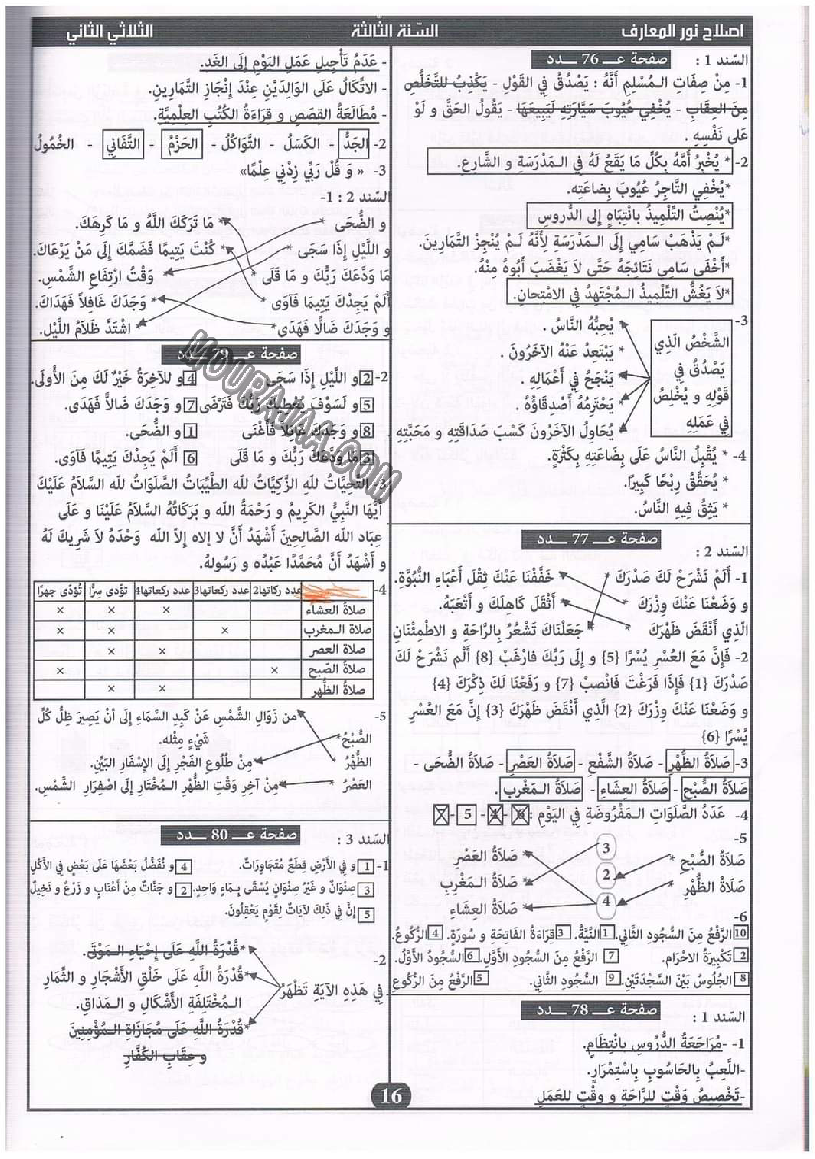 اصلاح نور المعارف
السّنة الثّالثة
الثلاثي الثاني
السّند 1 :
صفحة عــ 76 ــدد
1- مِنْ صِفَاتِ المُسْلِمِ أَنَّهُ : يَصْدُقُ فِي القَوْلِ - يَكْذِبُ لِلتَّخَلُّصِ
مِنَ العِقَابِ - يُخْفِي عُيُوبَ سَيَّارَتِهِ لِيَبِيعَهَا - يَقُولُ الحَقَّ وَ لَوْ
عَلَى نَفْسِهِ .
2- * يُخْبِرُ أُمَّهُ بِكُلِّ مَا يَقَعُ لَهُ فِي المَدْرَسَةِ و الشَّارِعِ.
*يُخْفِي التَّاجِرُ عُيُوبَ بِضَاعَتِهِ.
*يُنْصِتُ التِّلْمِيذُ بِانْتِبَاهٍ إِلَى الدُّرُوسِ
*لَمْ يَذْهَبْ سَامِي إِلَى المَدْرَسَةِ لِأَنَّهُ لَمْ يُنْجِزِ التَّمَارِينَ.
*أَخْفَى سَامِي نَتَائِجَهُ حَتَّى لاَ يَغْضَبَ أَبُوهُ مِنْهُ.
*لاَ يَغُشُّ التِّلْمِيذُ المُجْتَهِدُ فِي الامْتِحانِ.
3-
الشَّخْصُ الَّذِي
يَصْدُقُ فِي
قَوْلِهِ و يُخْلِصُ
فِي عَمَلِهِ
* يُحِبُّهُ النَّاسُ .
* يَبْتَعِدُ عَنْهُ الآخَرُونَ .
* يَنْجَحُ فِي أَعْمَالِهِ .
* يَحْتَرِمُهُ أَصْدِقَاؤُهُ .
* يُحَاوِلُ الآخَرُونَ كَسْبَ صَدَاقَتِهِ و مَحَبَّتِهِ
4- * يُقْبِلُ النَّاسُ عَلَى بِضَاعَتِهِ بِكَثْرَةٍ.
* يُحَقِّقُ رِبْحًا كَبِيرًا.
* يَثِقُ فِيهِ النَّاسُ.
صفحة عــ 77 ــدد
السّند 2 :
1- أَلَمْ نَشْرَحْ لَكَ صَدْرَكَ * خَفَّفْنَا عَنْكَ ثِقْلَ أَعْبَاءِ النُّبُوَّةِ.
و وَضَعْنَا عَنْكَ وِزْرَكَ * أَثْقَلَ كَاهِلَكَ و أَتْعَبَهُ.
الَّذِي أَنْقَضَ ظَهْرَكَ * جَعَلْنَاكَ تَشْعُرُ بِالرَّاحَةِ و الاطْمِئْنَانِ
2- فَإِنَّ مَعَ العُسْرِ يُسْرًا {5} و إِلَى رَبِّكَ فارْغَبْ {8} أَلَم نَشْرَحْ لَكَ
صَدْرَكَ {1} فَإِذَا فَرَغْتَ فَانْصِبْ {7} و رَفَعْنَا لَكَ ذِكْرَكَ {4}
و وَضَعْنَا عَنْكَ وِزْرَكَ {2} الَّذِي أَنْقَضَ ظَهْرَكَ {3} إِنَّ مَعَ العُسْرِ
يُسْرًا {6}
3- صَلاَةُ الظُّهْرِ - صَلاَةُ الشَّفْعِ - صَلاَةُ العَصْرِ - صَلاَةُ الضُّحَى -
صَلاَةُ الصُّبْحِ - صَلاَةُ العِشَاءِ - صَلاَةُ المَغْرِبِ .
4- عَدَدُ الصَّلَوَاتِ المَفْرُوضَةِ فِي اليَوْمِ : - 4 - 5 -
5-
صَلاَةُ الصُّبْحِ
صَلاَةُ الظُّهْرِ
3
2
4
* صَلاَةُ العَصْرِ
* صَلاَةُ المَغْرِبِ
* صَلاَةُ العِشَاءِ
6-
10 الرَّفْعُ مِنَ السُّجُودِ الثَّانِي. 1 النِّيَّةُ. 3 قِرَاءَةُ الفَاتِحَةِ و سُورَةٍ. 4 الرُّكُوعُ.
2 تَكْبِيرَةُ الاحْرَامِ. 7 الرَّفْعُ مِنَ السُّجُودِ الأَوَّلِ. 6 السُّجُودُ الأَوَّلُ.
8 الجُلُوسُ بَيْنَ السَّجْدَتَيْنِ. 9 السُّجُودُ الثَّانِي. 5 الرَّفْعُ مِنَ الرُّكُوعِ
صفحة عــ 78 ــدد
السّند 1 :
1- -مُرَاجَعَةُ الدُّرُوسِ بِانْتِظَامٍ.
-اللَّعِبُ بِالحَاسُوبِ بِاسْتِمْرَارٍ.
-تَخْصِيصُ وَقْتٍ للرَّاحَةِ و وقْتٍ للعَمَلِ
- عَدَمُ تَأْجِيلِ عَمَلِ اليَوْمِ إِلَى الغَدِ.
- الاتِّكَالُ عَلَى الوَالِدَيْنِ عِنْدَ إِنْجَازِ التَّمَارِينِ.
- مُطَالَعَةُ القِصَصِ و قِرَاءَةُ الكُتُبِ العِلْمِيَّةِ.
2- الجَدُّ - الكَسَلُ - التَّوَاكُلُ - الحَزْمُ - التَّفَانِي - الخُمُولُ
3- « وَ قُلْ رَبِّي زِدْنِي عِلْمًا»
السّند 2 : 1-
و الضُّحَى * مَا تَرَكَكَ اللَّهُ و مَا كَرِهَكَ.
و اللَّيْلِ إِذَا سَجَى * كُنْتَ يَتِيمًا فَضَمَّكَ إِلَى مَنْ يَرْعَاكَ.
مَا وَدَّعَكَ رَبُّكَ و مَا قَلَى * وَقْتُ ارْتِفَاعِ الشَّمْسِ.
أَلَمْ يَجِدْكَ يَتِيمًا فَآوَى * وَجَدَكَ غَافِلاً فَهَدَاكَ.
و وَجَدَكَ ضَالًا فَهَدَى * اشْتَدَّ ظَلاَمُ اللَّيْلِ.
صفحة عــ 79 ــدد
2- 2 و اللَّيْلِ إِذَا سَجَى 4 و للآخِرَةُ خَيْرٌ لَكَ مِنَ الأُولَى.
5 و لَسَوْفَ يُعْطِيكَ رَبُّكَ فَتَرْضَى 7 و وَجَدَكَ ضَالاًّ فَهَدَى.
8 و وَجَدَكَ عَائِلاً فَأَغْنَى 1 و الضُّحَى.
3 مَا وَدَّعَكَ رَبُّكَ و مَا قَلَى 6 أَلَمْ يَجِدْكَ يَتِيمًا فَآوَى.
3- التَّحِيَّاتُ للَّهِ الزَّكِيَّاتُ للَّهِ الطَّيِّبَاتُ الصَّلَوَاتُ للَّهِ السَّلاَمُ عَلَيْكَ
أَيُّهَا النَّبِيُّ الكَرِيمُ و رَحْمَةُ اللَّهِ و بَرَكَاتُهُ السَّلاَمُ عَلَيْنَا و عَلَى
عِبَادِ اللَّهِ الصَّالِحِينَ أَشْهَدُ أَنْ لا إلاه إلاَّ اللَّه وَحْدَهُ لاَ شَرِيكَ لَهُ
و أَشْهَدُ أَنَّ مُحَمَّدًا عَبْدُه و رَسُولُهُ.
4-
عدد ركاتها2 عدد ركعاتها3 عدد ركعاتها4 تؤدى سرّا تُؤدّى جهرًا
صلاة العشاء × × ×
صلاة المغرب × × ×
صلاة العصر × ×
صلاة الصّبح × ×
صلاة الظّهر × ×
5-
الصُّبْحُ
الظُّهْرُ
العَصْرُ
* من زَوَالِ الشَّمْسِ عَنْ كَبِدِ السَّمَاءِ إِلَى أَنْ يَصِيرَ ظِلُّ كُلِّ
شَيْءٍ مِثْلَه.
* مِنْ طُلُوعِ الفَجْرِ إِلَى الإِسْفَارِ البَيِّنِ.
* مِنْ آخِرِ وَقْتِ الظُّهْرِ المُخْتَارِ إِلَى اصْفِرَارِ الشَّمْسِ.
صفحة عــ 80 ــدد
السّند 3 :
1- 1 و فِي الأَرْضِ قِطَعٌ مُتَجَاوِرَاتٌ. 4 و نُفَضِّلُ بَعْضَهَا عَلَى بَعْضٍ فِي الأُكُلِ
3 صِنْوَانٌ و غَيْرُ صِنْوَانٍ يُسْقَى بِمَاءٍ وَاحِدٍ. 2 و جَنَّاتٌ مِنْ أَعْنَابٍ و زَرْعٌ و نَخِيلٌ
5 إِنَّ فِي ذَلِكَ لآيَاتٍ لِقَوْمٍ يَعْقِلُونَ.
2-
فِي هَذِهِ الآيَةِ تَظْهَرُ
*قُدْرَةُ اللَّهِ عَلَى إِحْيَاءِ المَوْتَى.
*قُدْرَةُ اللَّهِ عَلَى خَلْقِ الأَشْجَارِ و الثِّمَارِ
المُخْتَلِفَةِ الأَشْكَالِ و المَذَاقِ.
*قُدْرَةُ اللَّهِ عَلَى مُجَازَاةِ المُؤْمِنِينَ
و عِقَابِ الكُفَّارِ
16
MOURAJAA.COM